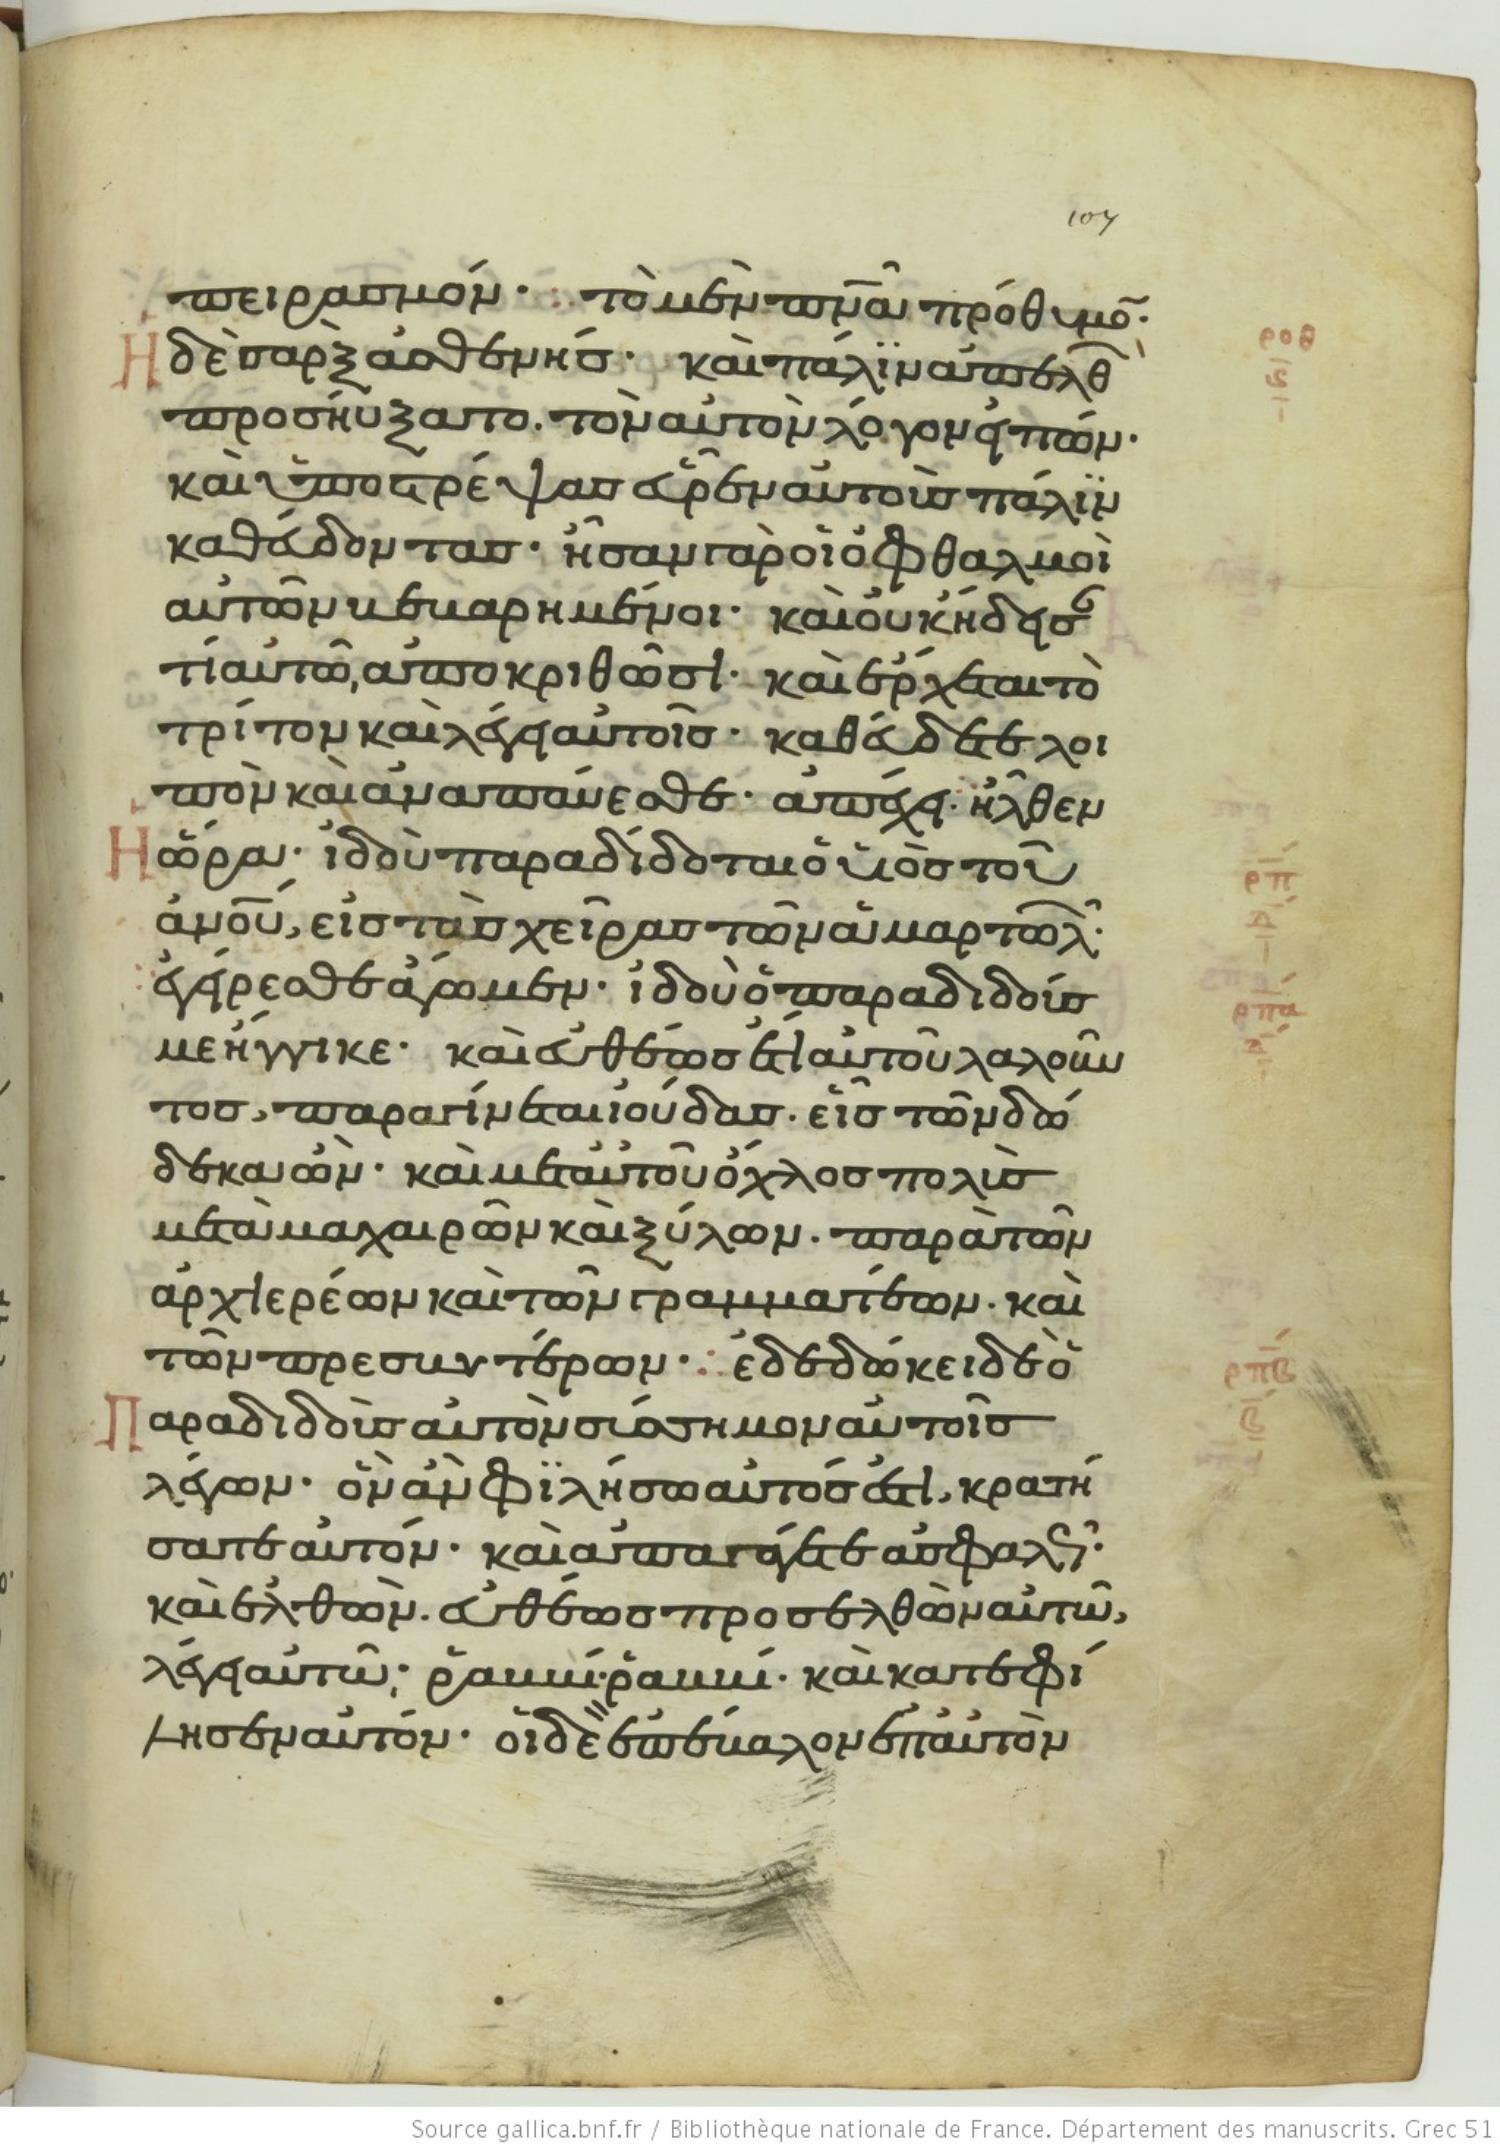 107
πειρασμόν· τὸ μὲν πνᾶ πρόθυμο̄·
Ἡ δὲ σὰρξ ἀσθενής· καὶ πάλϊν ἀπελθ
προσηύξατο. τὸν αὐτὸν λόγον εἰπών·
καὶ ὑποστρέψας εὗρεν αὐτοὺς πάλϊν
καθεύδοντας· ἦσαν γὰρ οἱ ὀφθαλμοὶ
αὐτῶν βεβαρημένοι· καὶ οὐκ ἤδεισ
τί αὐτῶ, ἀποκριθῶσι· καὶ ἔρχεται τὸ
τρίτον καὶ λέγει αὐτοῖς· καθεύδετε λοι
πὸν καὶ ἀναπαύεσθε· ἀπέχει· ἦλθεν
Ἡ ὥρα· ἰδοὺ παραδίδοται ὁ υἱὸς τοῦ
ἀν̄ου, εἰς τὰς χεῖρας τῶν ἁμαρτωλ·
ἐγείρεσθε ἄγωμεν· ἰδοὺ ὁ παραδιδούς
με ἤγγικε· καὶ εὐθέως ἔτι αὐτοῦ λαλοῦν
τος, παραγίνεται ἰούδας. εἷς τῶν δώ
δεκα ὢν· καὶ μετ αὐτοῦ ὄχλος πολὺς
μετὰ μαχαιρῶν καὶ ξύλων. παρὰ τῶν
ἀρχιερέων καὶ τῶν γραμματέων. καὶ
τῶν πρεσβυτέρων· ἐδεδώκει δὲ ὁ
Παραδιδοὺς αὐτὸν σύσσημον αὐτοῖς
λέγων· ὃν ἂν φϊλήσω αὐτός ἐστι, κρατή
σατε αὐτόν· καὶ ἀπαγάγετε ἀσφαλῶς·
καὶ ἐλθὼν. εὐθέως προσελθὼν αὐτῶ,
λέγει αὐτῶ· ῥαββί· ῥαββί. καὶ κατεφί
λησεν αὐτόν· οἱ δὲ ἐπέβαλον ἐπ αὐτὸν
ροθ
ϛ
ρπ
δ
ρπα
δ
ρπβ
β
Source gallica.bnf.fr / Bibliothèque nationale de France. Département des manuscrits. Grec 51